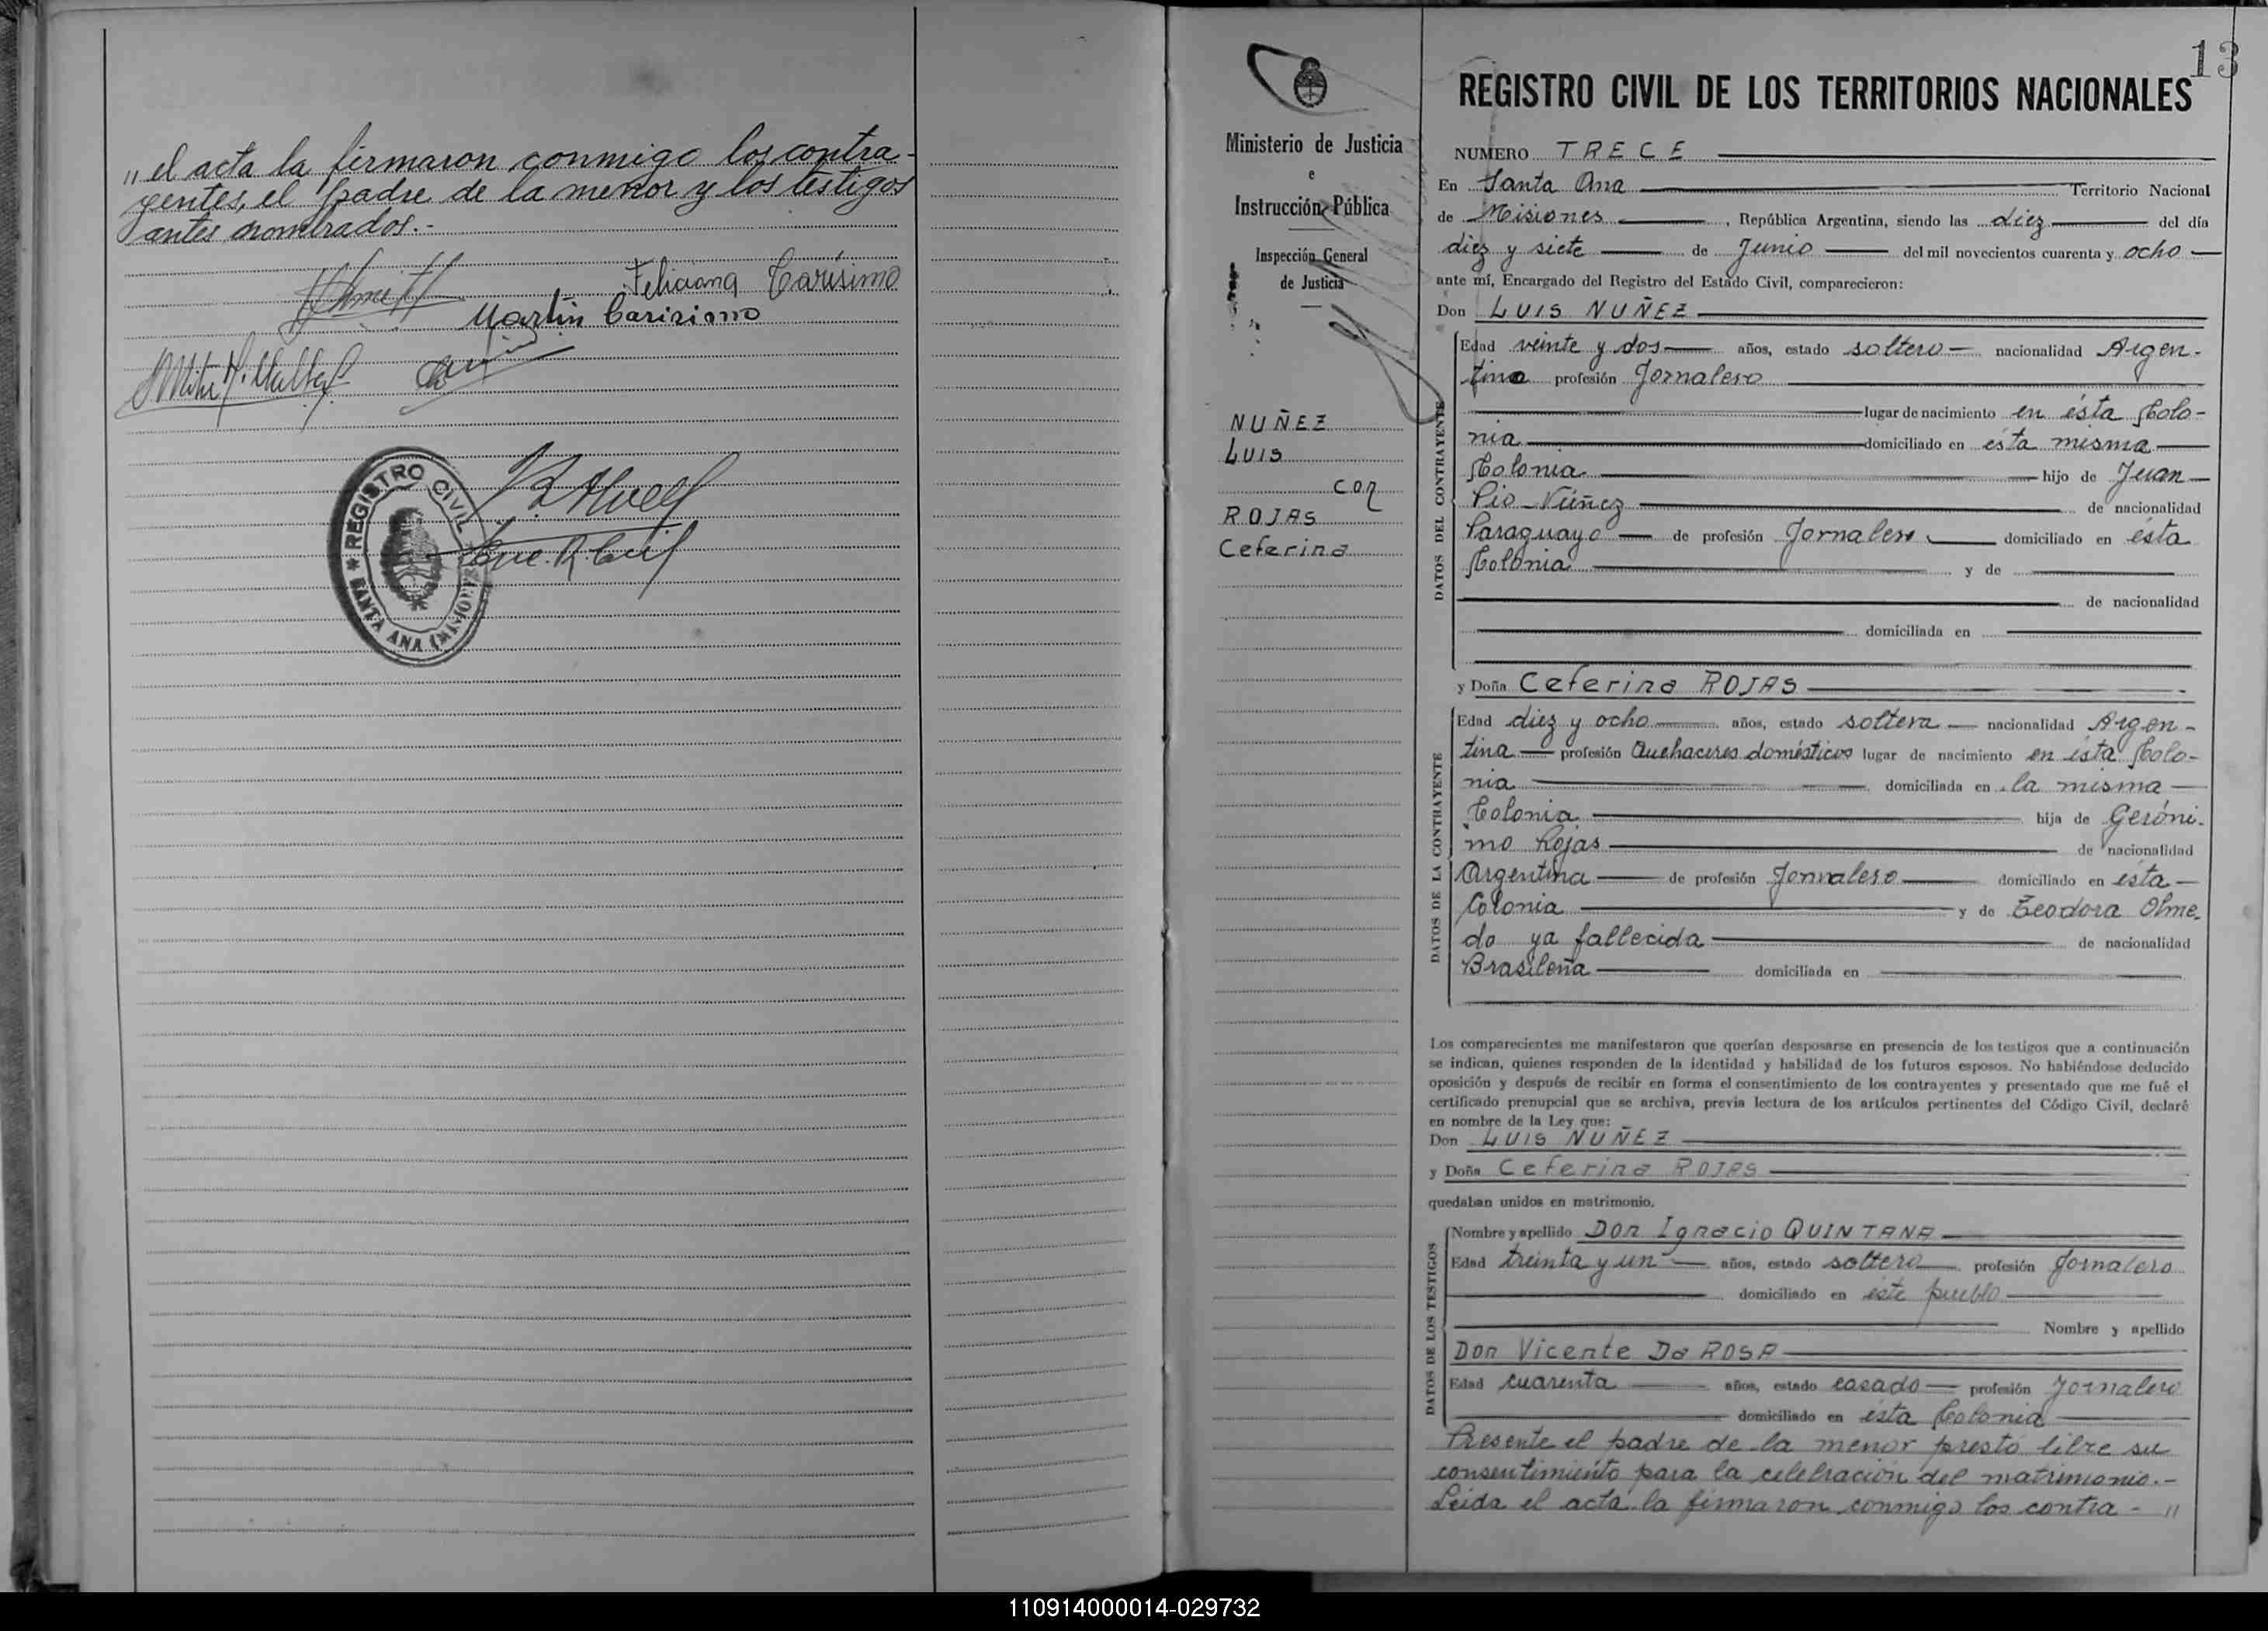 „ el acta la firmaron conmigo los contra-
yentes, el padre de la menor y los testigos
antes nombrados.-
Feliciana Carísimo
Martin Carisimo
REGISTRO CIVIL
SANTA ANA (MISIONES)
Enc. R. Civil
13
Ministerio de Justicia
e
Instrucción Pública
Inspección General
de Justicia
NUÑEZ
LUIS
con
ROJAS
Ceferina
REGISTRO CIVIL DE LOS TERRITORIOS NACIONALES
NUMERO TRECE
En Santa Ana Territorio Nacional
de Misiones, República Argentina, siendo las diez del día
diez y siete de Junio del mil novecientos cuarenta y ocho
ante mí, Encargado del Registro del Estado Civil, comparecieron:
Don LUIS NUÑEZ
DATOS DEL CONTRAYENTE
Edad veinte y dos años, estado soltero nacionalidad Argen-
tino profesión Jornalero
lugar de nacimiento en ésta Colo-
nia domiciliado en esta misma
Colonia hijo de Juan
Pio Núñez de nacionalidad
Paraguayo de profesión Jornalero domiciliado en ésta
Colonia y de
de nacionalidad
domiciliada en
y Doña Ceferina ROJAS
DATOS DE LA CONTRAYENTE
Edad diez y ocho años, estado soltera nacionalidad Argen-
tina profesión Quehaceres domésticos lugar de nacimiento en ésta Colo-
nia domiciliada en la misma
Colonia hija de Geróni-
mo Rojas de nacionalidad
Argentina de profesión Jornalero domiciliado en ésta
Colonia y de Teodora Olme-
do ya fallecida de nacionalidad
Brasileña domiciliada en
Los comparecientes me manifestaron que querían desposarse en presencia de los testigos que a continuación
se indican, quienes responden de la identidad y habilidad de los futuros esposos. No habiéndose deducido
oposición y después de recibir en forma el consentimiento de los contrayentes y presentado que me fué el
certificado prenupcial que se archiva, previa lectura de los artículos pertinentes del Código Civil, declaré
en nombre de la Ley que:
Don LUIS NUÑEZ
y Doña Ceferina ROJAS
quedaban unidos en matrimonio.
DATOS DE LOS TESTIGOS
Nombre y apellido Don Ignacio QUINTANA
Edad treinta y un años, estado soltero profesión Jornalero
domiciliado en éste pueblo
Nombre y apellido
Don Vicente Da ROSA
Edad cuarenta años, estado casado profesión Jornalero
domiciliado en ésta Colonia
Presente el padre de la menor prestó libre su
consentimiento para la celebración del matrimonio.-
Leida el acta la firmaron conmigo los contra- "
110914000014-029732